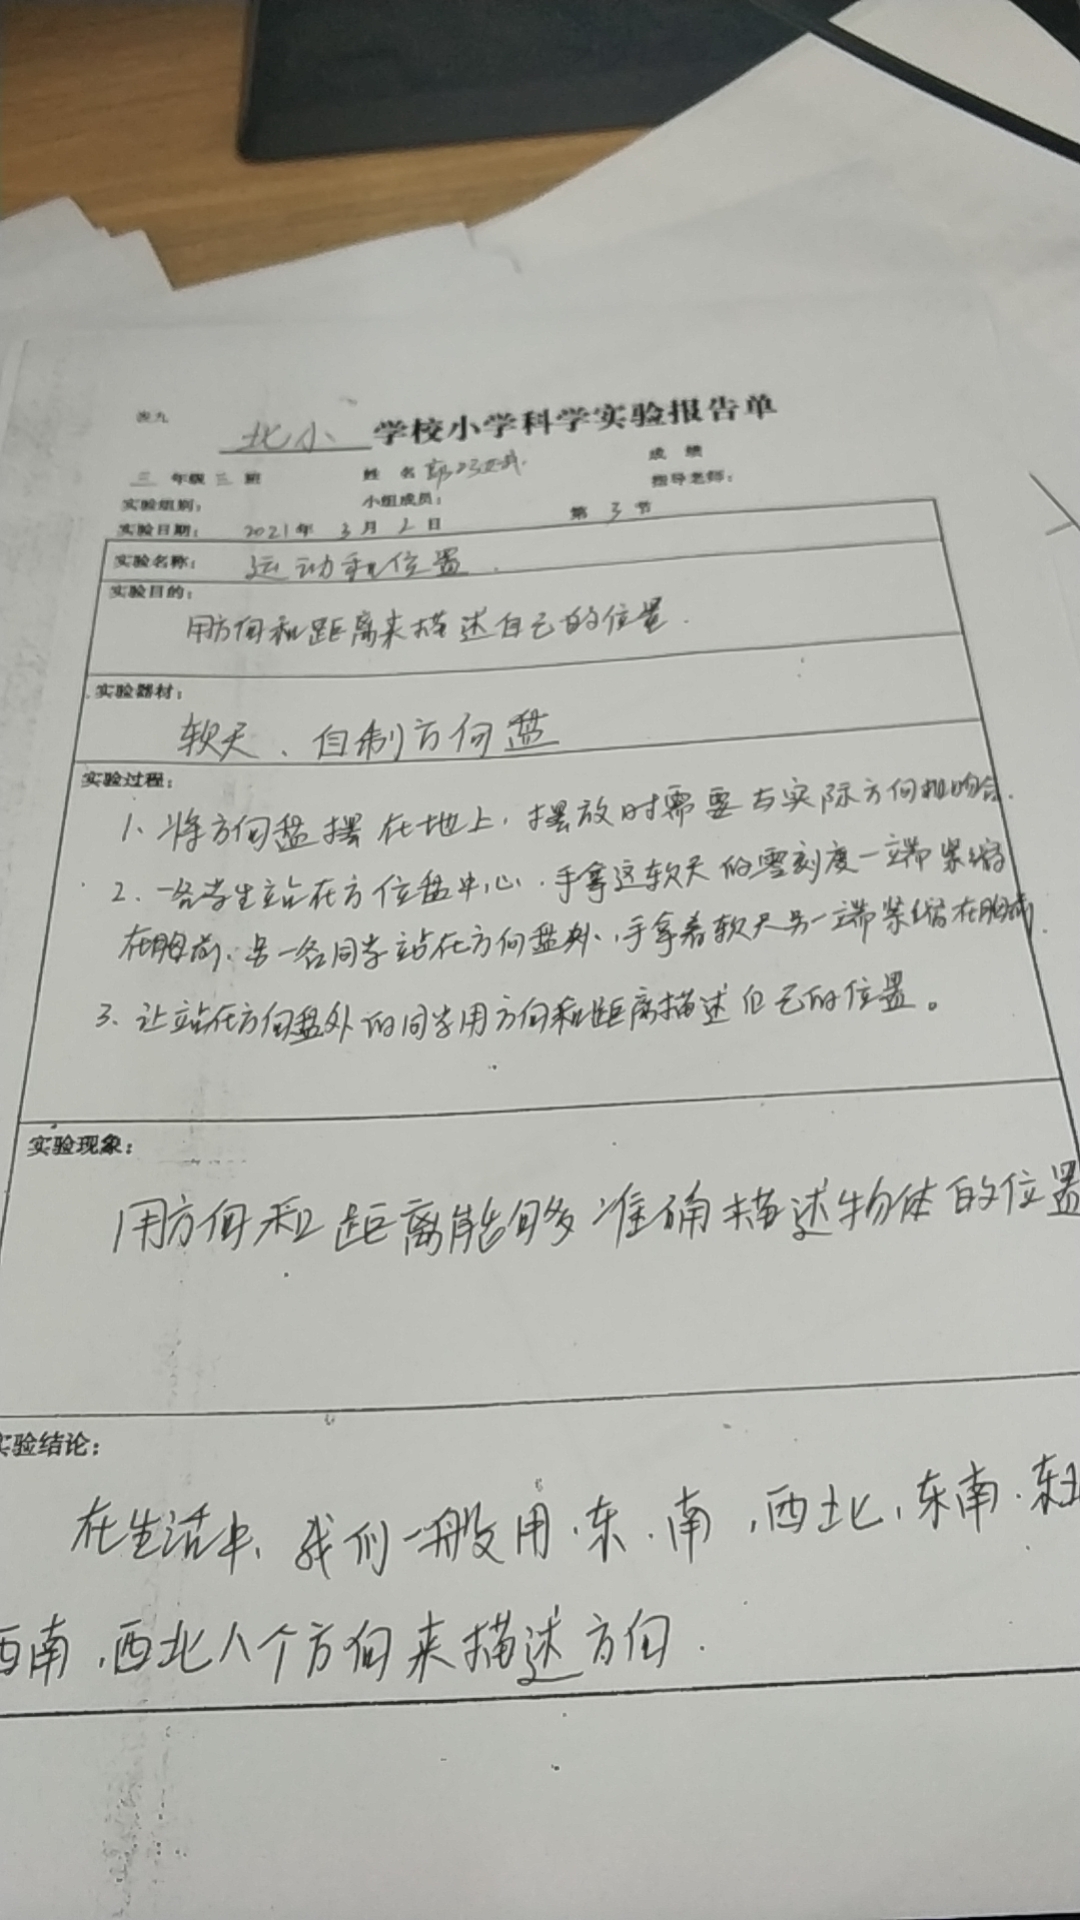 表九
北小 学校小学科学实验报告单
三 年级 三 班 姓 名 成 绩
实验组别: 小组成员: 指导老师:
实验日期: 2021年 3月 2日 第 3 节
实验名称: 运动和位置.
实验目的:
用方向和距离来描述自己的位置.
实验器材:
软尺、自制方向盘
实验过程:
1、将方向盘摆在地上,摆放时需要与实际方向相吻合.
2、一名学生站在方位盘中心.手拿这软尺的零刻度一端紧缩
在胸前、另一名同学站在方向盘外,手拿着软尺另一端紧缩在胸前.
3、让站在方向盘外的同学用方向和距离描述自己的位置。
实验现象:
用方向和距离能够准确描述物体的位置
实验结论:
在生活中,我们一般用,东.南,西北,东南.东北
西南,西北八个方向来描述方向.